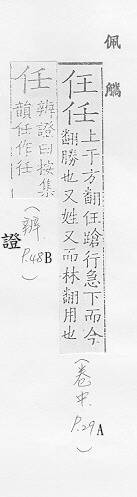 佩觿
仼任上于方翻仼蹌行急下而今
翻勝也又姓又而林翻用也
(卷中 P.29) A
仼辨證曰按集
韻仼作往
(辨 P.48) B
證